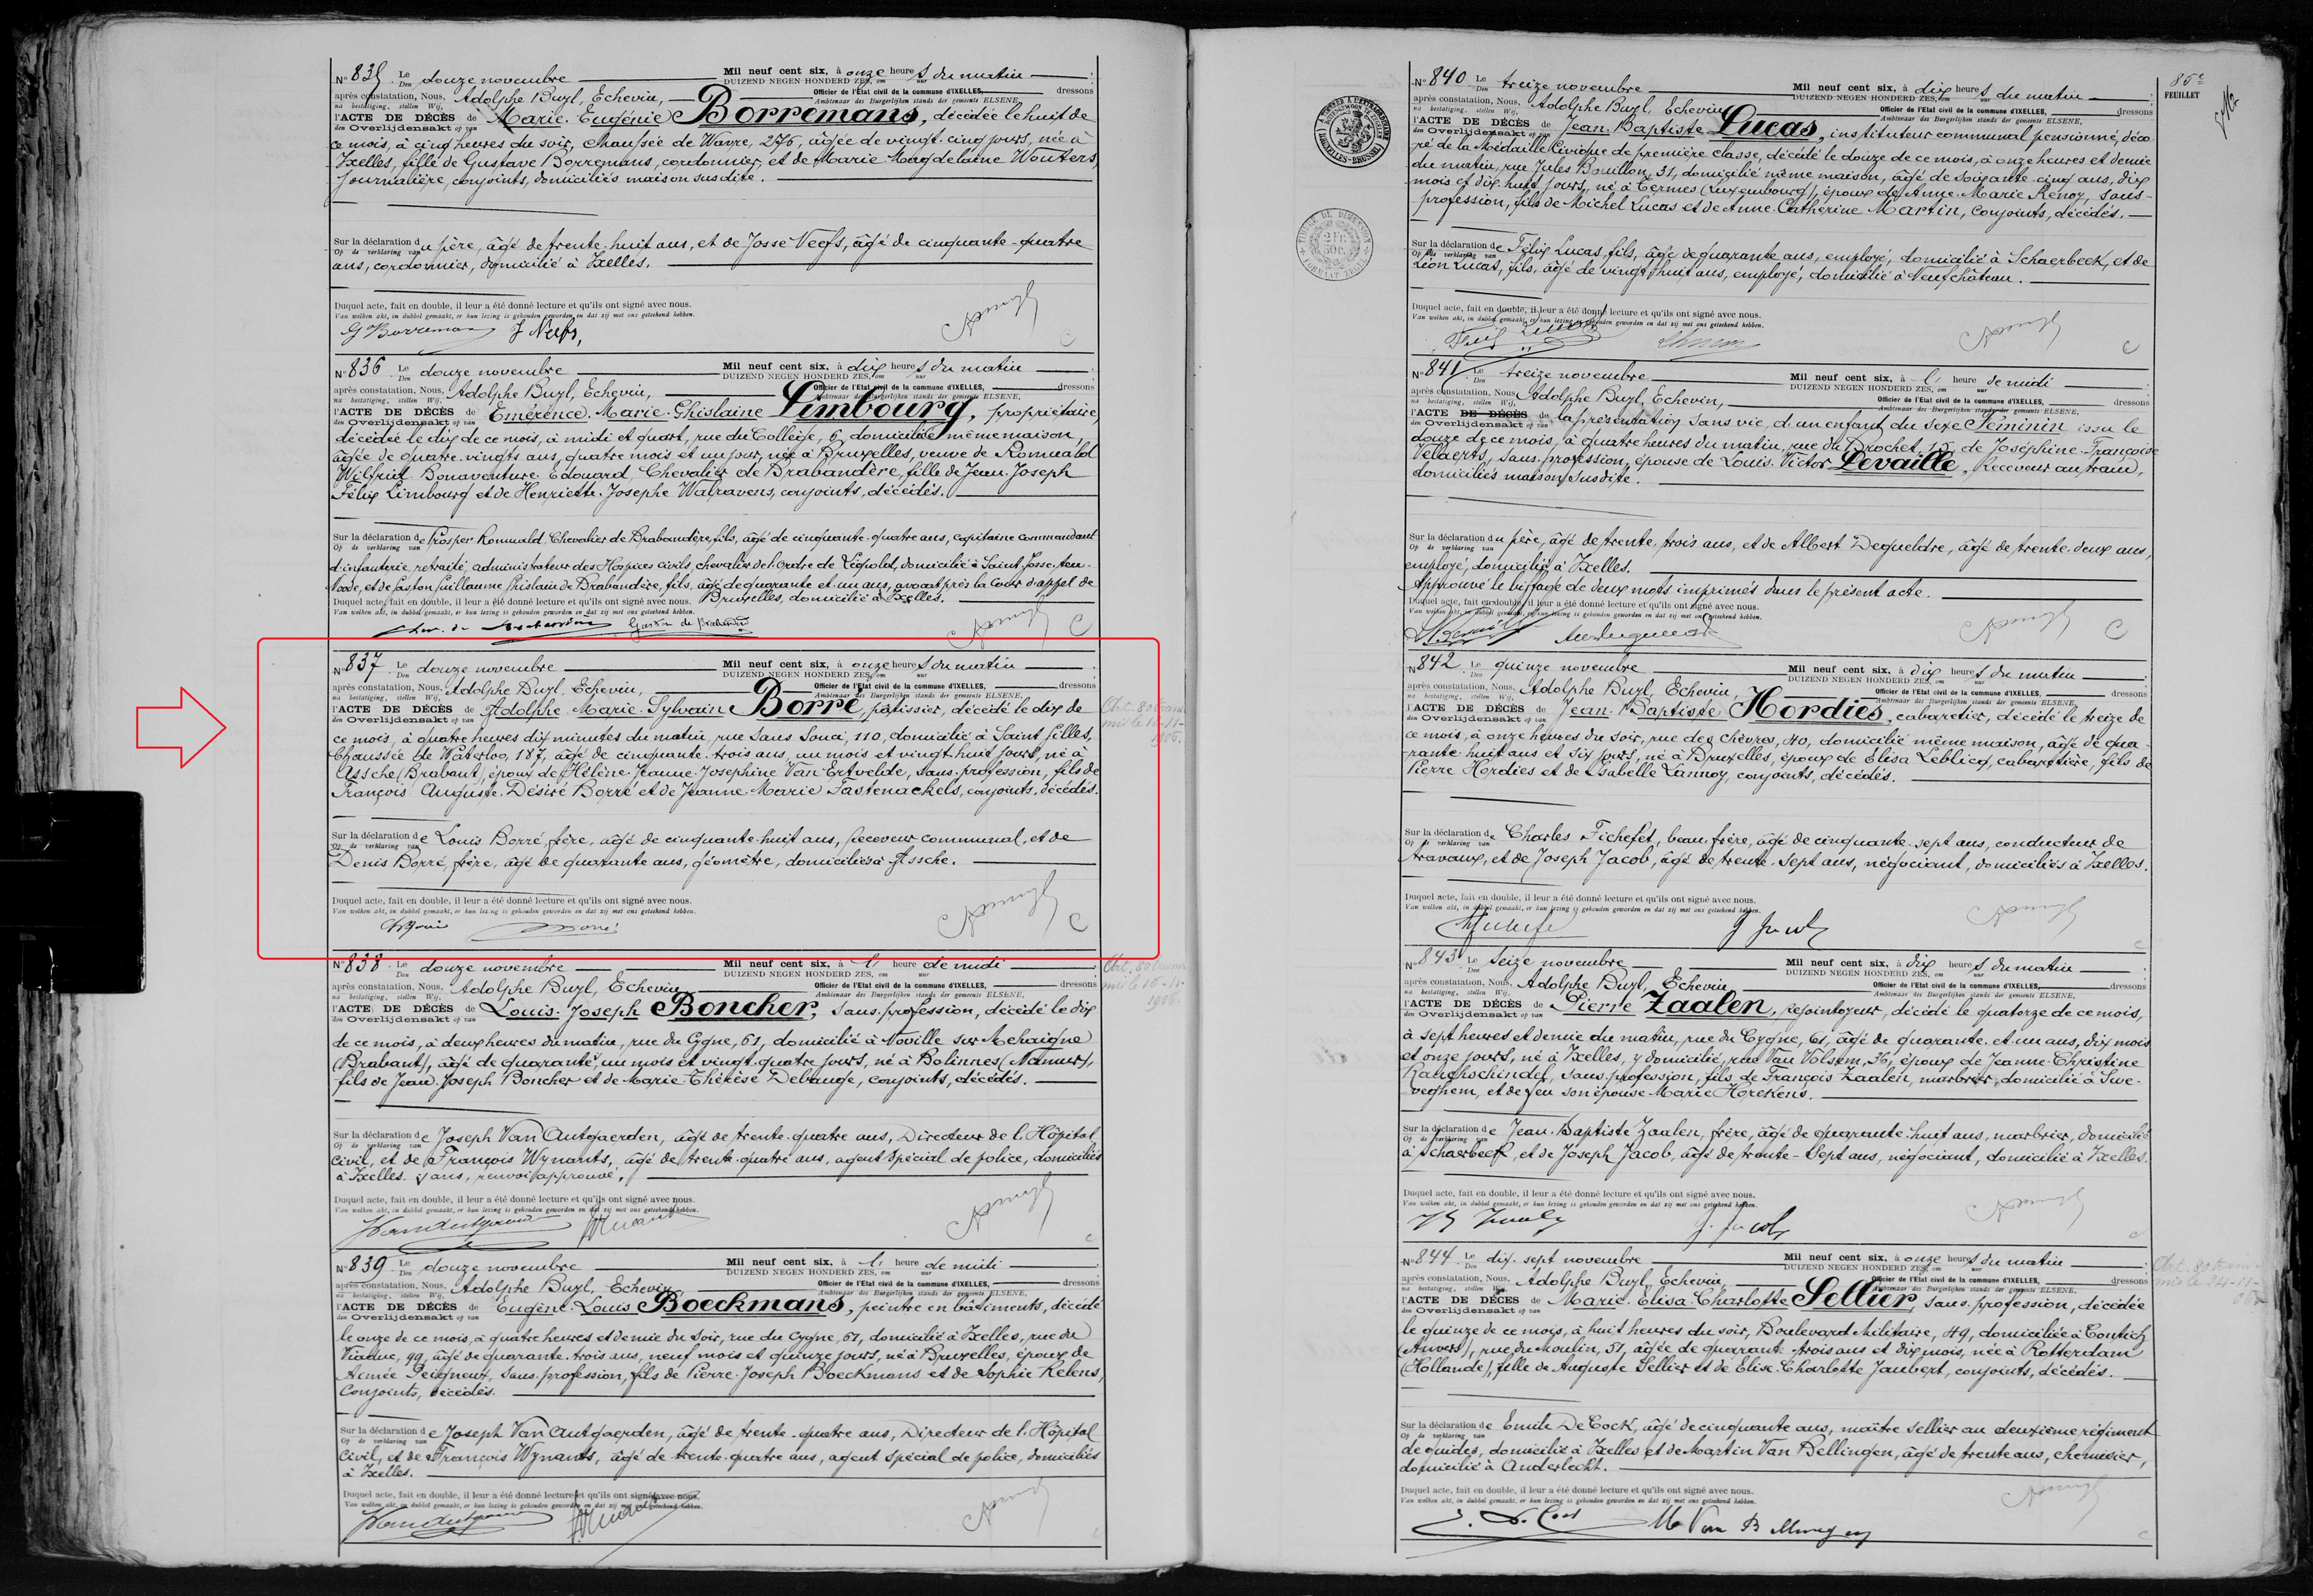 N° 835 Le douze novembre Mil neuf cent six, à onze heures du matin
Den DUIZEND NEGEN HONDERD ZES, om uur
après constatation, Nous, Adolphe Buyl, Echevin, Officier de l'Etat civil de la commune d'IXELLES, dressons
na bestatiging, stellen Wij, Ambtenaar des Burgerlijken stands der gemeente ELSENE,
l'ACTE DE DÉCÈS de Marie-Eugénie Borremans, décédée le huit de
den Overlijdensakt op van
ce mois, à cinq heures du soir, chaussée de Wavre, 276, âgée de vingt-cinq jours, née à
Ixelles, fille de Gustave Borremans, cordonnier, et de Marie-Magdelaine Wouters,
journalière, conjoints, domiciliés maison susdite.
Sur la déclaration du père, âgé de trente-huit ans, et de Josse Neefs, âgé de cinquante-quatre
Op de verklaring van
ans, cordonnier, domicilié à Ixelles.
Duquel acte, fait en double, il leur a été donné lecture et qu'ils ont signé avec nous.
Van welken akt, in dubbel gemaakt, er hun lezing is gehouden geworden en dat zij met ons geteekend hebben.
G Borremans J Neefs,
N° 836 Le douze novembre Mil neuf cent six, à dix heures du matin
Den DUIZEND NEGEN HONDERD ZES, om uur
après constatation, Nous, Adolphe Buyl, Echevin, Officier de l'Etat civil de la commune d'IXELLES, dressons
na bestatiging, stellen Wij, Ambtenaar des Burgerlijken stands der gemeente ELSENE,
l'ACTE DE DÉCÈS de Emérence-Marie-Ghislaine Limbourg, propriétaire,
den Overlijdensakt op van
décédée le dix de ce mois, à midi et quart, rue du Collège, 6, domiciliée même maison,
âgée de quatre-vingts ans, quatre mois et un jour, née à Bruxelles, veuve de Romuald
Wilfrid-Bonaventure-Edouard, Chevalier de Brabandère, fille de Jean-Joseph
Félix Limbourg et de Henriette-Josephe Walravens, conjoints, décédés.
Sur la déclaration de Prosper-Romuald Chevalier de Brabandère, fils, âgé de cinquante-quatre ans, capitaine commandant
Op de verklaring van
d'infanterie, retraité, administrateur des Hospices civils, chevalier de l'Ordre de Léopold, domicilié à Saint-Josse-ten-
Noode, et de Gaston Guillaume Ghislain de Brabandère, fils, âgé de quarante et un ans, avocat près la Cour d'appel de
Bruxelles, domicilié à Ixelles.
Duquel acte, fait en double, il leur a été donné lecture et qu'ils ont signé avec nous.
Van welken akt, in dubbel gemaakt, er hun lezing is gehouden geworden en dat zij met ons geteekend hebben.
Gaston de Brabandère
N° 837 Le douze novembre Mil neuf cent six, à onze heures du matin
Den DUIZEND NEGEN HONDERD ZES, om uur
après constatation, Nous, Adolphe Buyl, Echevin, Officier de l'Etat civil de la commune d'IXELLES, dressons
na bestatiging, stellen Wij, Ambtenaar des Burgerlijken stands der gemeente ELSENE,
l'ACTE DE DÉCÈS de Adolphe-Marie-Sylvain Borré, pâtissier, décédé le dix de
den Overlijdensakt op van
ce mois, à quatre heures dix minutes du matin, rue Sans Souci, 110, domicilié à Saint-Gilles,
Chaussée de Waterloo, 187, âgé de cinquante-trois ans, un mois et vingt-huit jours, né à
Assche (Brabant), époux de Hélène-Jeanne-Josephine Van Ertvelde, sans profession, fils de
François-Auguste-Désiré Borré et de Jeanne-Marie Fastenackels, conjoints, décédés.
Sur la déclaration de Louis Borré, frère, âgé de cinquante-huit ans, receveur communal, et de
Op de verklaring van
Denis Borré, frère, âgé de quarante ans, géomètre, domiciliés à Assche.
Duquel acte, fait en double, il leur a été donné lecture et qu'ils ont signé avec nous.
Van welken akt, in dubbel gemaakt, er hun lezing is gehouden geworden en dat zij met ons geteekend hebben.
Art. 80 trans-
mis le 16-11-
1906.
N° 838 Le douze novembre Mil neuf cent six, à l' heure de midi
Den DUIZEND NEGEN HONDERD ZES, om uur
après constatation, Nous, Adolphe Buyl, Echevin, Officier de l'Etat civil de la commune d'IXELLES, dressons
na bestatiging, stellen Wij, Ambtenaar des Burgerlijken stands der gemeente ELSENE,
l'ACTE DE DÉCÈS de Louis-Joseph Boncher, sans profession, décédé le dix
den Overlijdensakt op van
de ce mois, à deux heures du matin, rue du Cygne, 61, domicilié à Noville sur Mehaigne
(Brabant), âgé de quarante, un mois et vingt-quatre jours, né à Bolinnes (Namur),
fils de Jean-Joseph Boncher et de Marie-Thérèse Debauge, conjoints, décédés.
Sur la déclaration de Joseph Van Autgaerden, âgé de trente-quatre ans, Directeur de l'Hôpital
Op de verklaring van
Civil, et de François Wynants, âgé de trente-quatre ans, agent spécial de police, domiciliés
à Ixelles. y ans, renvoi approuvé.
Duquel acte, fait en double, il leur a été donné lecture et qu'ils ont signé avec nous.
Van welken akt, in dubbel gemaakt, er hun lezing is gehouden geworden en dat zij met ons geteekend hebben.
Art. 80 trans-
mis le 16-11-
1906.
N° 839 Le douze novembre Mil neuf cent six, à l' heure de midi
Den DUIZEND NEGEN HONDERD ZES, om uur
après constatation, Nous, Adolphe Buyl, Echevin, Officier de l'Etat civil de la commune d'IXELLES, dressons
na bestatiging, stellen Wij, Ambtenaar des Burgerlijken stands der gemeente ELSENE,
l'ACTE DE DÉCÈS de Eugène-Louis Boeckmans, peintre en bâtiments, décédé
den Overlijdensakt op van
le onze de ce mois, à quatre heures et demie du soir, rue du Cygne, 61, domicilié à Ixelles, rue du
Viaduc, 99, âgé de quarante-trois ans, neuf mois et quinze jours, né à Bruxelles, époux de
Aimée Peigneux, sans profession, fils de Pierre-Joseph Boeckmans et de Sophie Kelens,
conjoints, décédés.
Sur la déclaration de Joseph Van Autgaerden, âgé de trente-quatre ans, Directeur de l'Hôpital
Op de verklaring van
Civil, et de François Wynants, âgé de trente-quatre ans, agent spécial de police, domiciliés
à Ixelles.
Duquel acte, fait en double, il leur a été donné lecture et qu'ils ont signé avec nous.
Van welken akt, in dubbel gemaakt, er hun lezing is gehouden geworden en dat zij met ons geteekend hebben.
85e
FEUILLET
N° 840 Le treize novembre Mil neuf cent six, à dix heures du matin
Den DUIZEND NEGEN HONDERD ZES, om uur
après constatation, Nous, Adolphe Buyl, Echevin Officier de l'Etat civil de la commune d'IXELLES, dressons
na bestatiging, stellen Wij, Ambtenaar des Burgerlijken stands der gemeente ELSENE,
l'ACTE DE DÉCÈS de Jean-Baptiste Lucas, instituteur communal pensionné, déco-
den Overlijdensakt op van
ré de la Médaille Civique de première classe, décédé le douze de ce mois, à onze heures et demie
du matin, rue Jules Bouillon, 31, domicilié même maison, âgé de soixante-cinq ans, dix
mois et dix-huit jours, né à Termes (Luxembourg), époux de Anne-Marie Renoy, sans
profession, fils de Michel Lucas et de Anne-Catherine Martin, conjoints, décédés.
Sur la déclaration de Félix Lucas, fils, âgé de quarante ans, employé, domicilié à Schaerbeek, et de
Op de verklaring van
Léon Lucas, fils, âgé de vingt-huit ans, employé, domicilié à Neufchâteau.
Duquel acte, fait en double, il leur a été donné lecture et qu'ils ont signé avec nous.
Van welken akt, in dubbel gemaakt, er hun lezing is gehouden geworden en dat zij met ons geteekend hebben.
N° 841 Le treize novembre Mil neuf cent six, à l' heure de midi
Den DUIZEND NEGEN HONDERD ZES, om uur
après constatation, Nous, Adolphe Buyl, Echevin, Officier de l'Etat civil de la commune d'IXELLES, dressons
na bestatiging, stellen Wij, Ambtenaar des Burgerlijken stands der gemeente ELSENE,
l'ACTE DE DÉCÈS de la présentation sans vie, d'un enfant du sexe Féminin issu le
den Overlijdensakt op van
douze de ce mois, à quatre heures du matin, rue du Brochet, 15, de Joséphine-Françoise
Velaerts, sans profession, épouse de Louis-Victor Levaille, receveur au tram,
domiciliés maison susdite.
Sur la déclaration du père, âgé de trente-trois ans, et de Albert Dequeldre, âgé de trente-deux ans,
Op de verklaring van
employé, domicilié à Ixelles.
Approuvé le biffage de deux mots imprimés dans le présent acte.
Duquel acte, fait en double, il leur a été donné lecture et qu'ils ont signé avec nous.
Van welken akt, in dubbel gemaakt, er hun lezing is gehouden geworden en dat zij met ons geteekend hebben.
N° 842 Le quinze novembre Mil neuf cent six, à dix heures du matin
Den DUIZEND NEGEN HONDERD ZES, om uur
après constatation, Nous, Adolphe Buyl, Echevin, Officier de l'Etat civil de la commune d'IXELLES, dressons
na bestatiging, stellen Wij, Ambtenaar des Burgerlijken stands der gemeente ELSENE,
l'ACTE DE DÉCÈS de Jean-Baptiste Hordies, cabaretier, décédé le treize de
den Overlijdensakt op van
ce mois, à onze heures du soir, rue des Chèvres, 40, domicilié même maison, âgé de qua-
rante-huit ans et six jours, né à Bruxelles, époux de Elisa Leblicq, cabaretière, fils de
Pierre Hordies et de Isabelle Lannoy, conjoints, décédés.
Sur la déclaration de Charles Fichefet, beau-frère, âgé de cinquante-sept ans, conducteur de
Op de verklaring van
travaux, et de Joseph Jacob, âgé de trente-sept ans, négociant, domiciliés à Ixelles.
Duquel acte, fait en double, il leur a été donné lecture et qu'ils ont signé avec nous.
Van welken akt, in dubbel gemaakt, er hun lezing is gehouden geworden en dat zij met ons geteekend hebben.
J Jacob
N° 843 Le seize novembre Mil neuf cent six, à dix heures du matin
Den DUIZEND NEGEN HONDERD ZES, om uur
après constatation, Nous, Adolphe Buyl, Echevin Officier de l'Etat civil de la commune d'IXELLES, dressons
na bestatiging, stellen Wij, Ambtenaar des Burgerlijken stands der gemeente ELSENE,
l'ACTE DE DÉCÈS de Pierre Zaalen, rejointoyeur, décédé le quatorze de ce mois,
den Overlijdensakt op van
à sept heures et demie du matin, rue du Cygne, 61, âgé de quarante et un ans, dix mois
et onze jours, né à Ixelles, y domicilié, rue Van Volsem, 36, époux de Jeanne-Christine
Rauchschindel, sans profession, fils de François Zaalen, marbrier, domicilié à Swe-
veghem, et de feu son épouse Marie Horekens.
Sur la déclaration de Jean-Baptiste Zaalen, frère, âgé de quarante-huit ans, marbrier, domicilié
Op de verklaring van
à Schaerbeek, et de Joseph Jacob, âgé de trente-sept ans, négociant, domicilié à Ixelles.
Duquel acte, fait en double, il leur a été donné lecture et qu'ils ont signé avec nous.
Van welken akt, in dubbel gemaakt, er hun lezing is gehouden geworden en dat zij met ons geteekend hebben.
J. Jacob
N° 844 Le dix-sept novembre Mil neuf cent six, à onze heures du matin
Den DUIZEND NEGEN HONDERD ZES, om uur
après constatation, Nous, Adolphe Buyl, Echevin, Officier de l'Etat civil de la commune d'IXELLES, dressons
na bestatiging, stellen Wij, Ambtenaar des Burgerlijken stands der gemeente ELSENE,
l'ACTE DE DÉCÈS de Marie-Elisa-Charlotte Sellier, sans profession, décédée
den Overlijdensakt op van
le quinze de ce mois, à huit heures du soir, Boulevard Militaire, 49, domiciliée à Contich
(Anvers), rue du Moulin, 51, âgée de quarante-trois ans et dix mois, née à Rotterdam
(Hollande), fille de Auguste Sellier et de Elise-Charlotte Jaubert, conjoints, décédés.
Sur la déclaration de Emile De Cock, âgé de cinquante ans, maître sellier au deuxième régiment
Op de verklaring van
de guides, domicilié à Ixelles et de Martin Van Bellingen, âgé de trente ans, chemisier,
domicilié à Anderlecht.
Duquel acte, fait en double, il leur a été donné lecture et qu'ils ont signé avec nous.
Van welken akt, in dubbel gemaakt, er hun lezing is gehouden geworden en dat zij met ons geteekend hebben.
Art. 80 trans-
mis le 24-11-
06